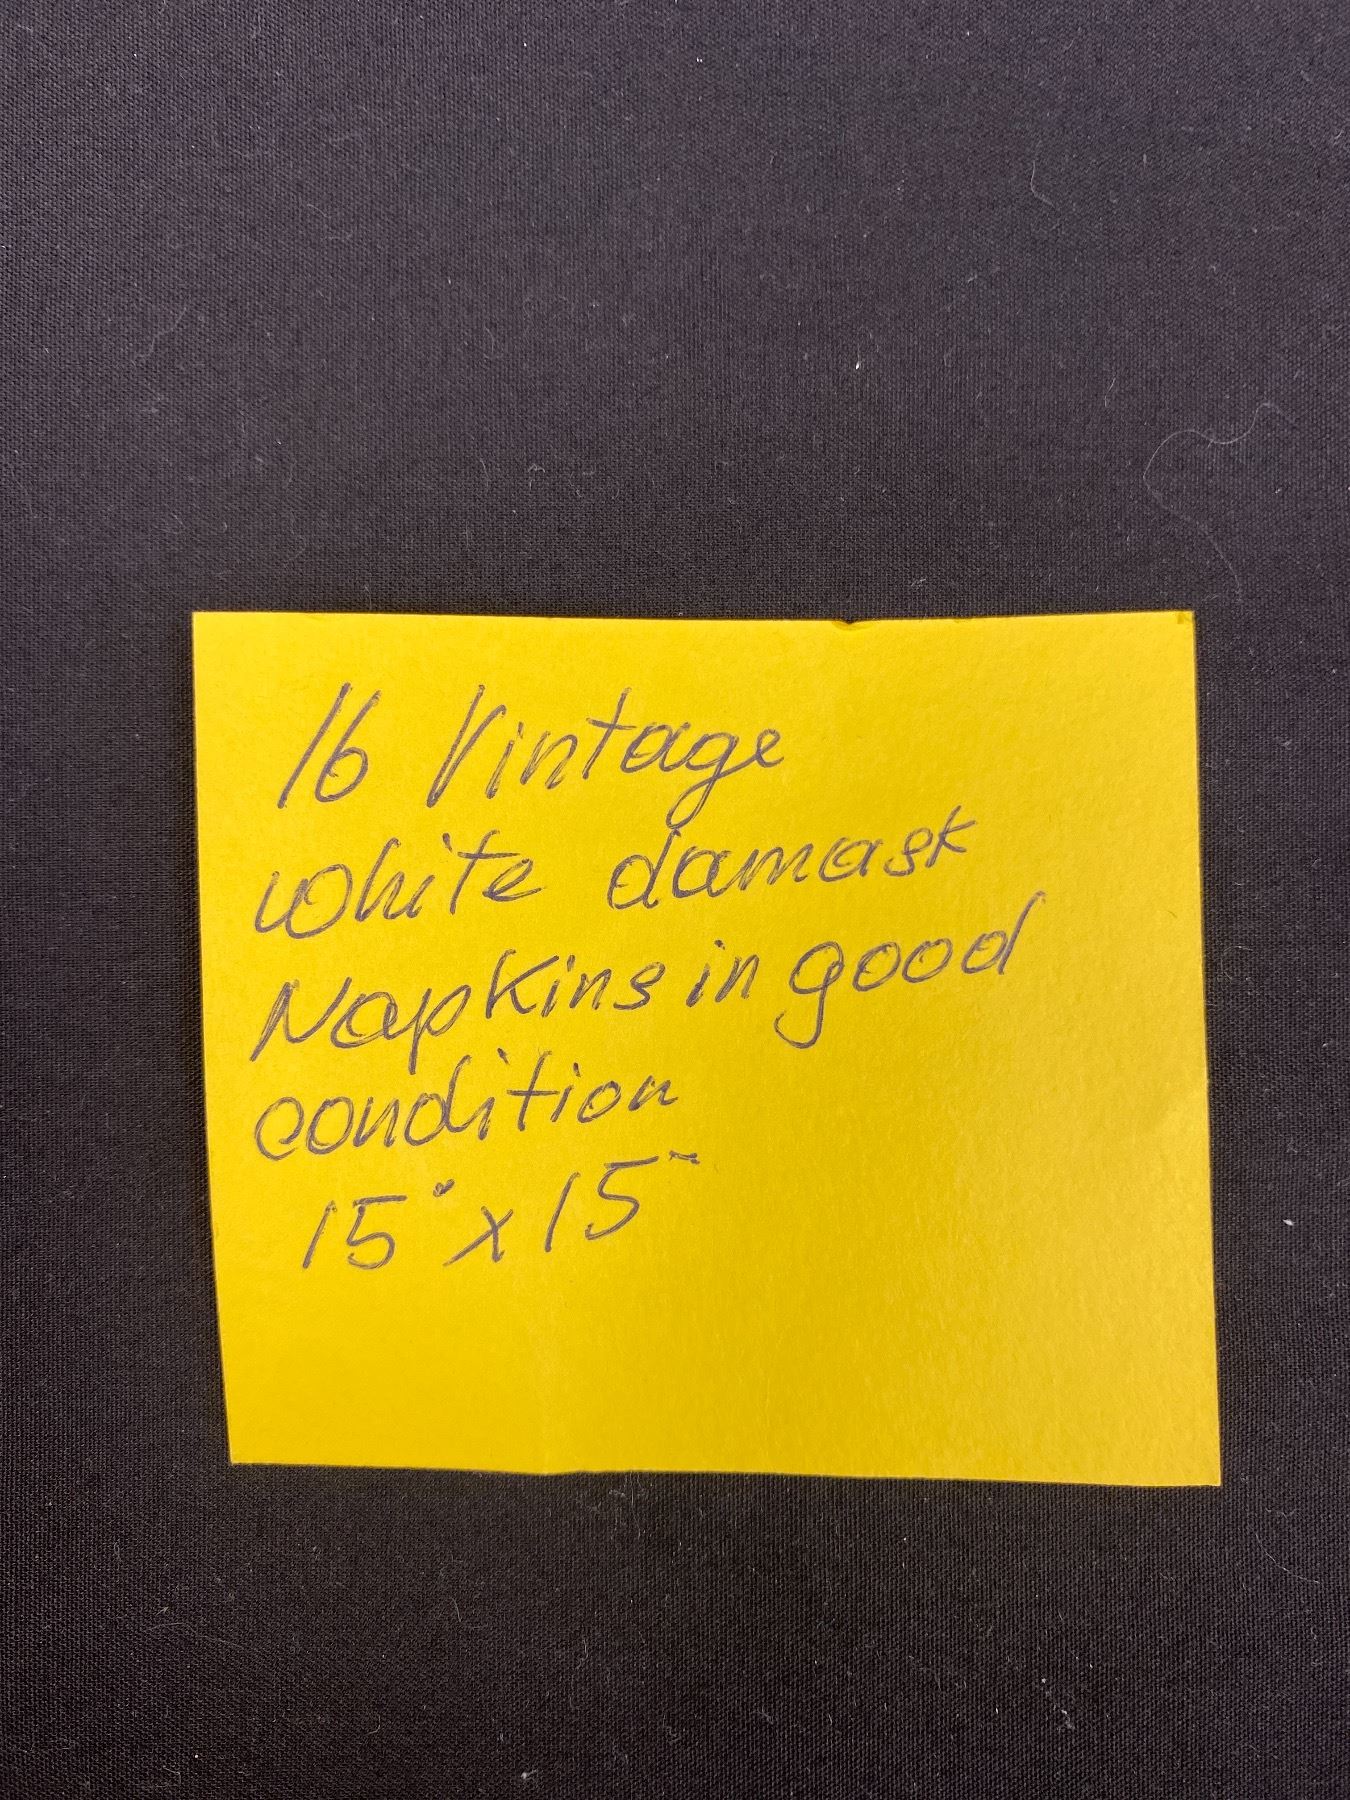 16 Vintage
white damask
Napkins in good
condition
15" x 15"